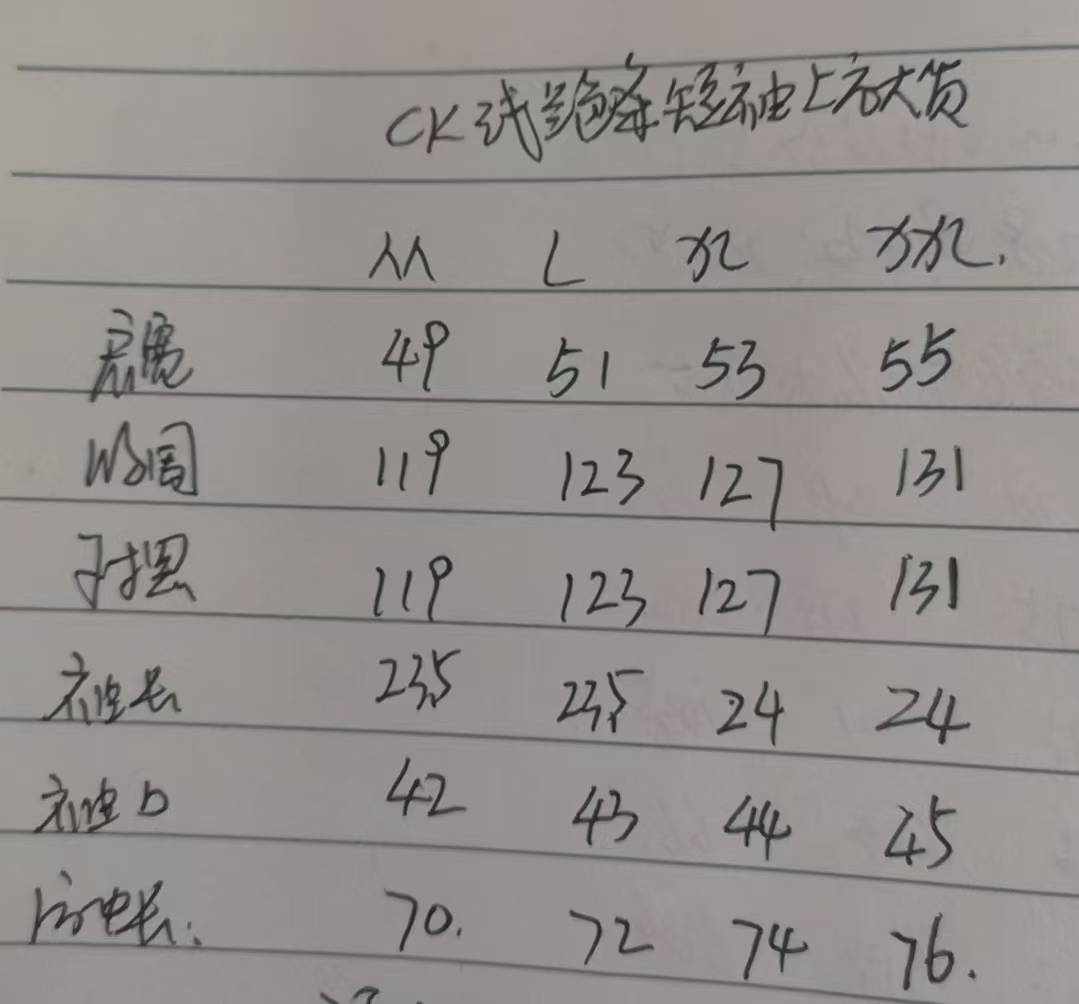 CK 短袖上衣大货
M L XL XXL.
肩宽 49 51 53 55
胸围 119 123 127 131
下摆 119 123 127 131
袖长 23.5 23.5 24 24
袖口 42 43 44 45
后中长: 70. 72 74 76.